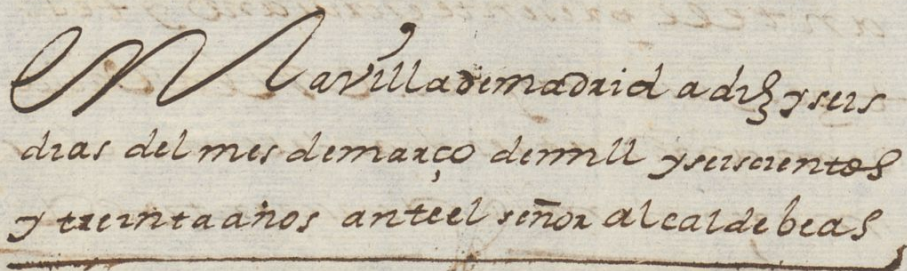 En la villa de madrid a diez y seis
dias del mes de março de mill y seiscientos
y treinta años ante el señor alcalde beas